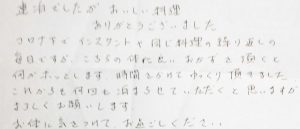 連泊でしたが おいしい料理
ありがとうございました
コロナ禍で インスタントや同じ料理の繰り返しの
毎日ですが、こちらの体に良い おかずを頂くと
何かホッとします。時間をかけてゆっくり頂きました
これからも何回も泊まらせていただくと思いますが
よろしくお願いします。
お体に気をつけて、お過ごしください